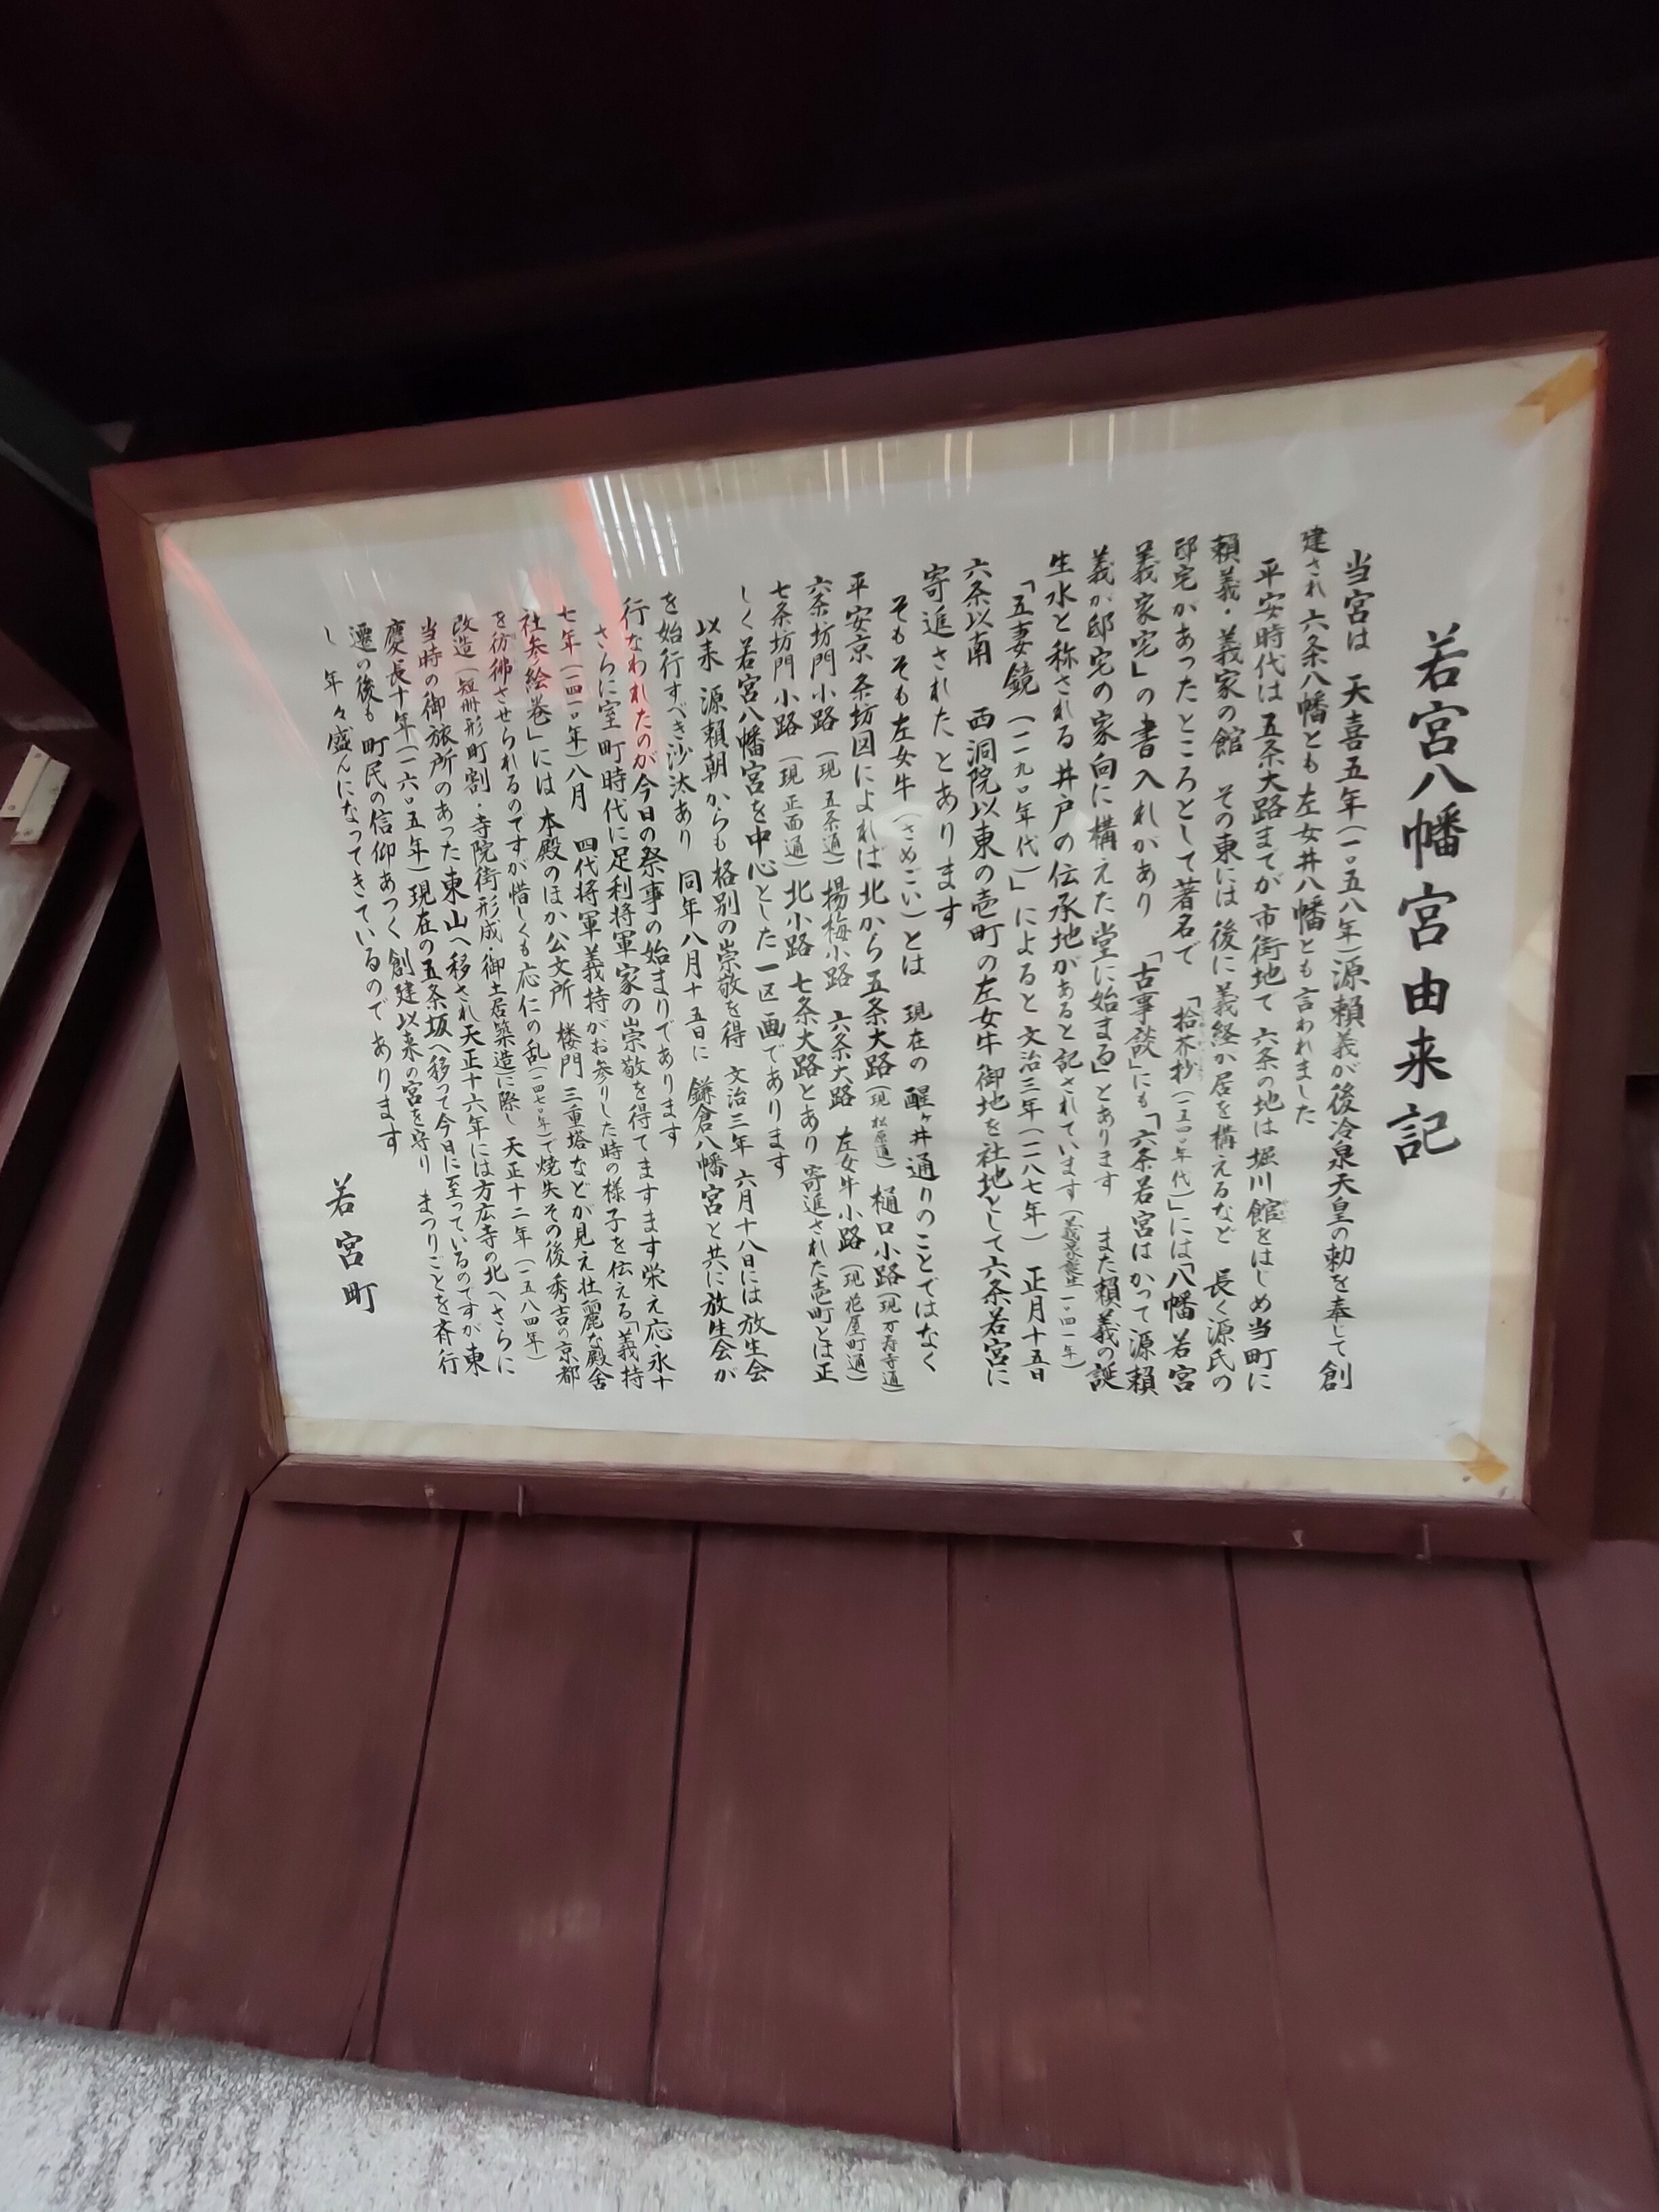 若宮八幡宮由来記
当宮は 天喜五年(一〇五八年)源頼義が後冷泉天皇の勅を奉じて創
建され 六条八幡とも左女井八幡とも言われました
平安時代は五条大路までが市街地て 六条の地は堀川館をはじめ当町に
頼義・義家の館 その東には後に義経が居を構えるなど 長く源氏の
邸宅があったところとして著名で 「拾芥抄(一三四〇年代)」には「八幡若宮
義家宅」の書入れがあり 「古事談」にも「六条若宮はかって源頼
義が邸宅の家向に構えた堂に始まる」とあります また頼義の誕
生水と称される井戸の伝承地があると記されています(義家誕生一〇四一年)
「五妻鏡(一一九〇年代)」によると文治三年(一一八七年) 正月十五日
六条以南 西洞院以東の壱町の左女牛御地を社地として六条若宮に
寄進されたとあります
そもそも左女牛(さめごい)とは 現在の醒ヶ井通りのことではなく
平安京条坊図によれば北から五条大路(現松原通)樋口小路(現万寿寺通)
六条坊門小路(現 五条通)楊梅小路 六条大路 左女牛小路(現花屋町通)
七条坊門小路(現正面通)北小路 七条大路とあり 寄進された壱町とは正
しく若宮八幡宮を中心とした一区画であります
以来 源頼朝からも格別の崇敬を得 文治三年六月十八日には放生会
を始行すべき沙汰あり 同年八月十五日に 鎌倉八幡宮と共に放生会が
行なわれたのが今日の祭事の始まりであります
さらに室町時代に足利将軍家の崇敬を得てますます栄え応永十
七年(一四一〇年)八月 四代将軍義持がお参りした時の様子を伝える「義持
社参絵巻」には 本殿のほか公文所 楼門 三重塔などが見え壮麗な殿舎
を彷彿させられるのですが惜しくも応仁の乱(一四七〇年)で焼失その後秀吉の京都
改造(短冊形町割・寺院街形成・御土居築造)に際し 天正十二年(一五八四年)
当時の御旅所のあった東山へ移され天正十六年には方広寺の北へさらに
慶長十年(一六〇五年)現在の五条坂へ移って今日に至っているのですが東
遷の後も町民の信仰あつく 創建以来の宮を守り まつりごとを斉行
し 年々盛んになってきているのであります
若宮町